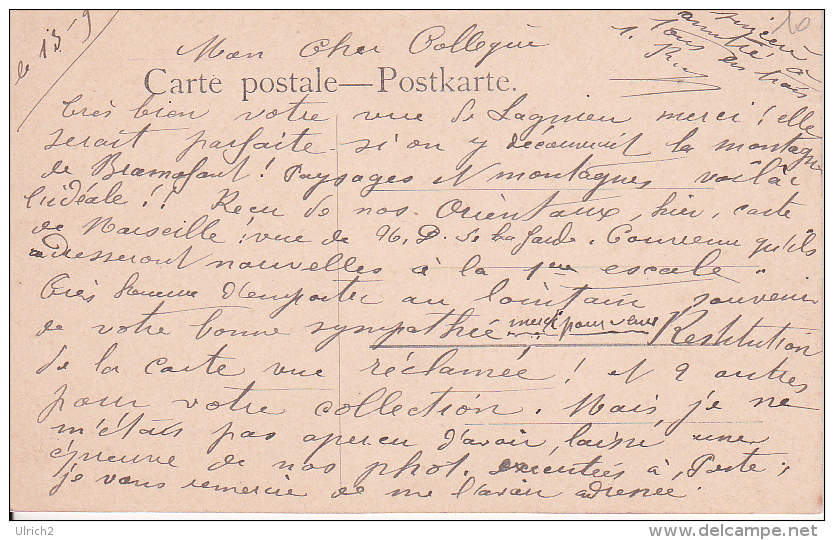 le 13-9
10
amitié à
Tous les trois
Mon Cher Collègue
Carte postale—Postkarte.
très bien votre vue de Lagnieu merci! elle
serait parfaite si on y découvrait la montagne
de Bramafant! Paysages et montagnes voilà
l'idéale!! Reçu de nos Orientaux, hier, carte
de Marseille: vue de N. D. de la Garde. Convenu qu'ils
adresseront nouvelles à la 1ère escale.
Très heureux d'emporter au lointain souvenir
de votre bonne sympathie merci pour eux Restitution
de la carte vue réclamée! et 2 autres
pour votre collection. Mais, je ne
m'étais pas aperçu d'avoir laissé une
épreuve de nos phot. exécutées à, Poste;
je vous remercie de me l'avoir adressée.
Ulrich2
www.delcampe.net